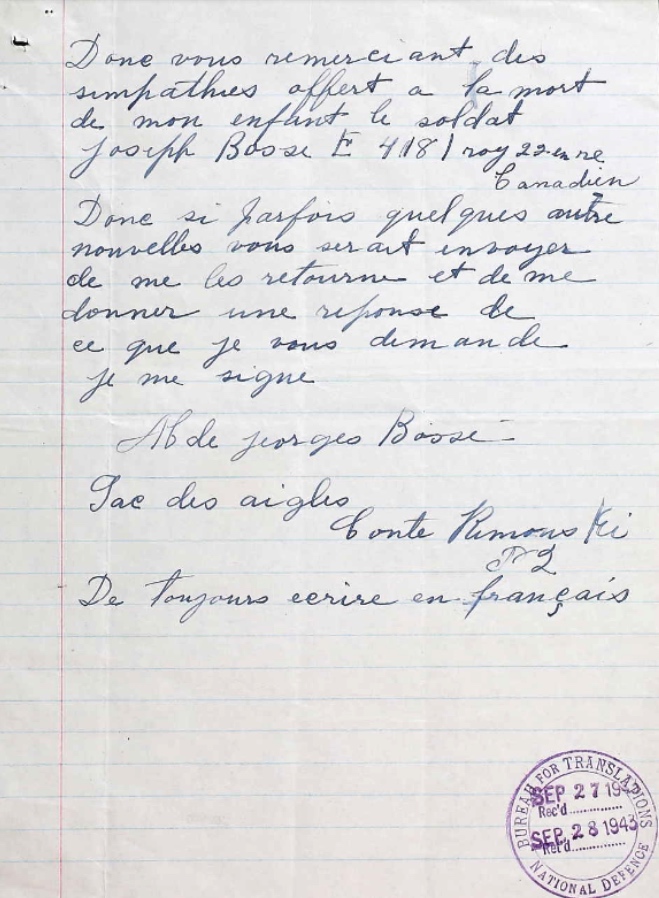 Donc vous remerciant des
simpathies offert a la mort
de mon enfant le soldat
Joseph Bosse E 4181 roy 22 en re
Canadien
Donc si parfois quelques autre
nouvelles vous serait envoyer
de me les retourne et de me
donner une reponse de
ce que je vous demande
je me signe
de georges Bosse
Lac des aigles
Conte Rimouski
P2
De toujours ecrire en français
BUREAU FOR TRANSLATIONS
SEP 27 194
Rec'd
SEP 28 1943
Ret'd
NATIONAL DEFENCE